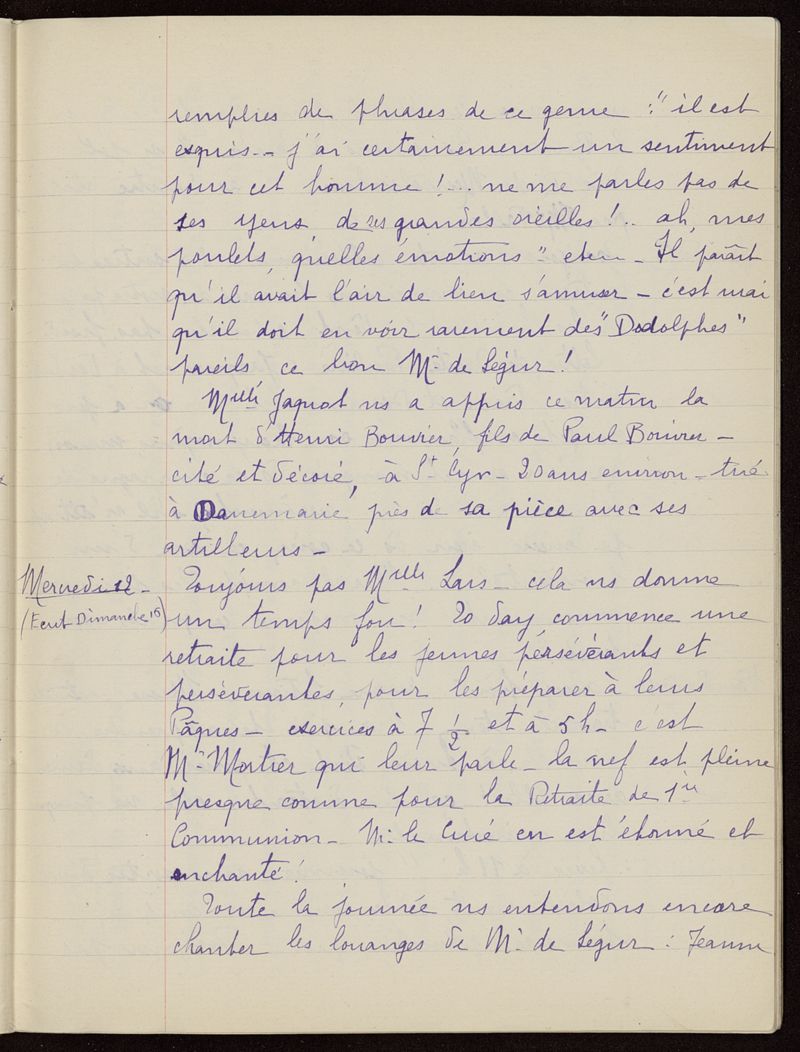 remplies de phrases de ce genre : "il est
exquis - j'ai certainement un sentiment
pour cet homme !... ne me parles pas de
ses yeux, de ses grandes oreilles !.. ah, mes
poulets, quelles émotions" etc... - Il paraît
qu'il avait l'air de bien s'amuser - c'est vrai
qu'il doit en voir rarement des "Dodolphes"
pareils ce bon Mr de Ségur !
Melle Jaquot ns a appris ce matin la
mort d'Henri Bouvier, fils de Paul Bouvier -
cité et décoré, à St Cyr - 20 ans environ - tué
à Danemarie près de sa pièce avec ses
artilleurs -
Mercredi 12 -
(Ecrit Dimanche 16)
Toujours pas Melle Lars - cela ns donne
un temps fou ! To day commence une
retraite pour les jeunes persévérants et
persévérantes, pour les préparer à leurs
Pâques - exercices à 7 1/2 et à 5 h - c'est
Mr Mortier qui leur parle - la nef est pleine
presque comme pour la Retraite de 1ère
Communion - Mr le Curé en est étonné et
enchanté !
Toute la journée ns entendons encore
chanter les louanges de Mr de Ségur : Jeanne